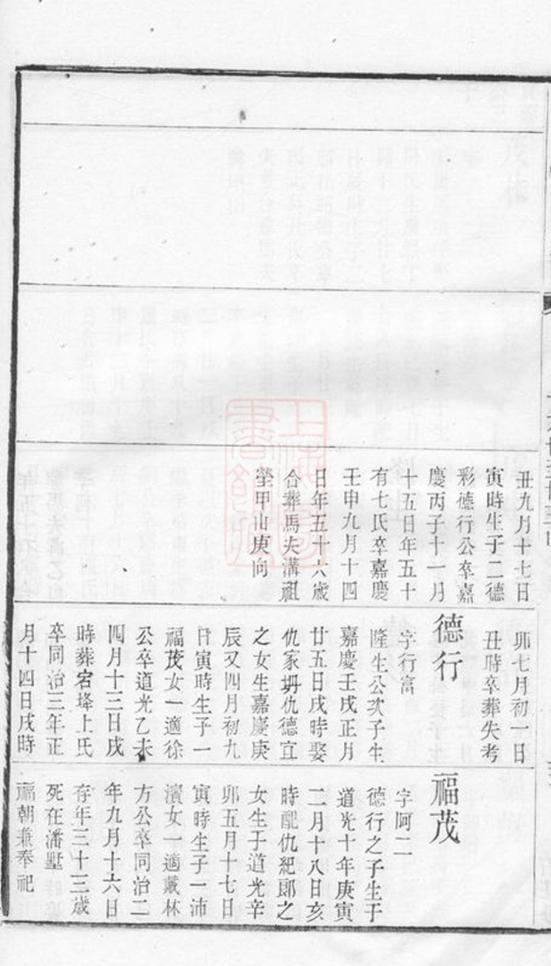 丑九月十七日
寅時生子二德
彩德行公卒嘉
慶丙子十一月
十五日年五十
有七氏卒嘉慶
壬申九月十四
日年五十六歲
合葬馬夫溝祖
塋甲山庚向
卯七月初一日
丑時卒葬失考
德行
字行富
隆生公次子生
嘉慶壬戌正月
廿五日戌時娶
仇家坍仇德宜
之女生嘉慶庚
辰又四月初九
日寅時生子一
福茂女一適徐
公卒道光乙未
四月十三日戌
時葬宕塳上氏
卒同治三年正
月十四日戌時
福茂
字阿二
德行之子生于
道光十年庚寅
二月十八日亥
時配仇紀郎之
女生于道光辛
卯五月十七日
寅時生子一沛
濱女一適戴林
方公卒同治二
年九月十六日
存年三十三歲
死在潘墅
福朝兼奉祀
上海圖書館藏